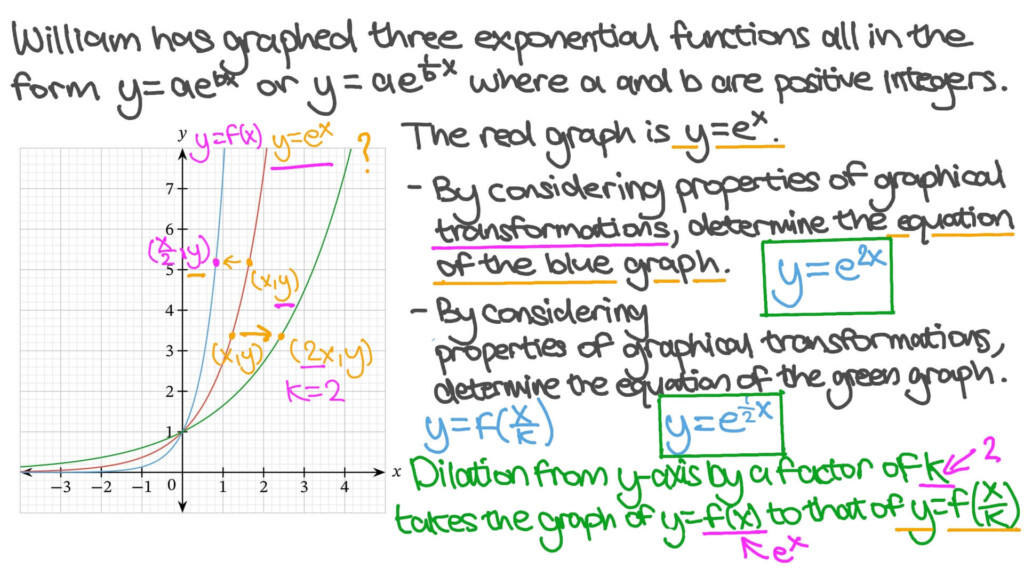 William has graphed three exponential functions all in the
form y=ae^{bx} or y=ae^{\frac{1}{b}x} where a and b are positive integers.
The red graph is y=e^x.
- By considering properties of graphical
transformations, determine the equation
of the blue graph.
y=e^{2x}
- By considering
properties of graphical transformations,
determine the equation of the green graph.
y=f(\frac{x}{k})
y=e^{\frac{1}{2}x}
Dilation from y-axis by a factor of k 2
takes the graph of y=f(x) to that of y=f(\frac{x}{k})
e^x
y
y=f(x)
y=e^x
?
7
6
5
4
3
2
1
(\frac{x}{2},y)
(x,y)
(x,y)
(2x,y)
k=2
-3 -2 -1 0 1 2 3 4 x